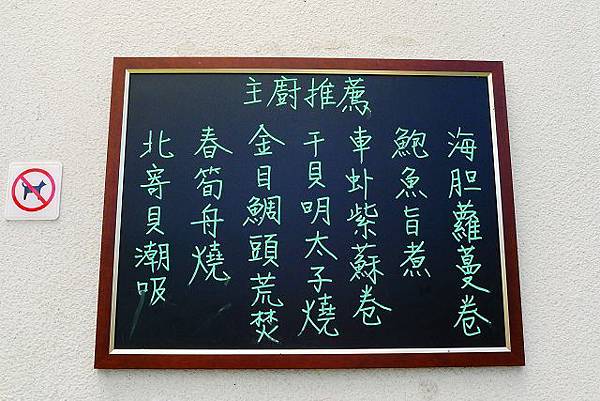 主廚推薦
海胆蘿蔓卷
鮑魚旨煮
車虾紫蘇卷
干貝明太子燒
金目鯛頭荒焚
春筍舟燒
北寄貝潮吸